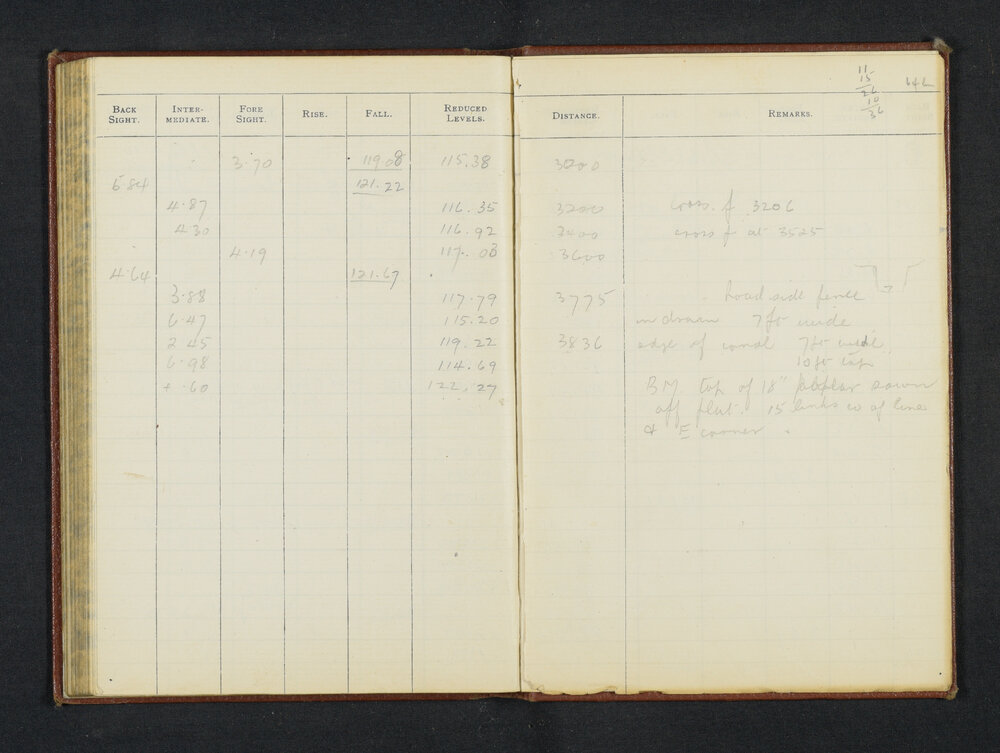 11
15
26
10
36
BACK SIGHT. INTER-MEDIATE. FORE SIGHT. RISE. FALL. REDUCED LEVELS. DISTANCE. REMARKS.
3.70 119.08 115.38 3000
5.84 121.22
4.87 116.35 3200 cross f 3206
4.30 116.92 3400 cross f at 3525
4.19 117.03 3600
4.64 121.67
3.88 117.79 3775 Road side fence
6.47 115.20 in drain 7ft wide
2.45 119.22 3836 edge of canal 7ft wide
6.98 114.69 10ft top
+ .60 122.27 BM top of 18" poplar sawn
off flat. 15 links of line
& E corner.